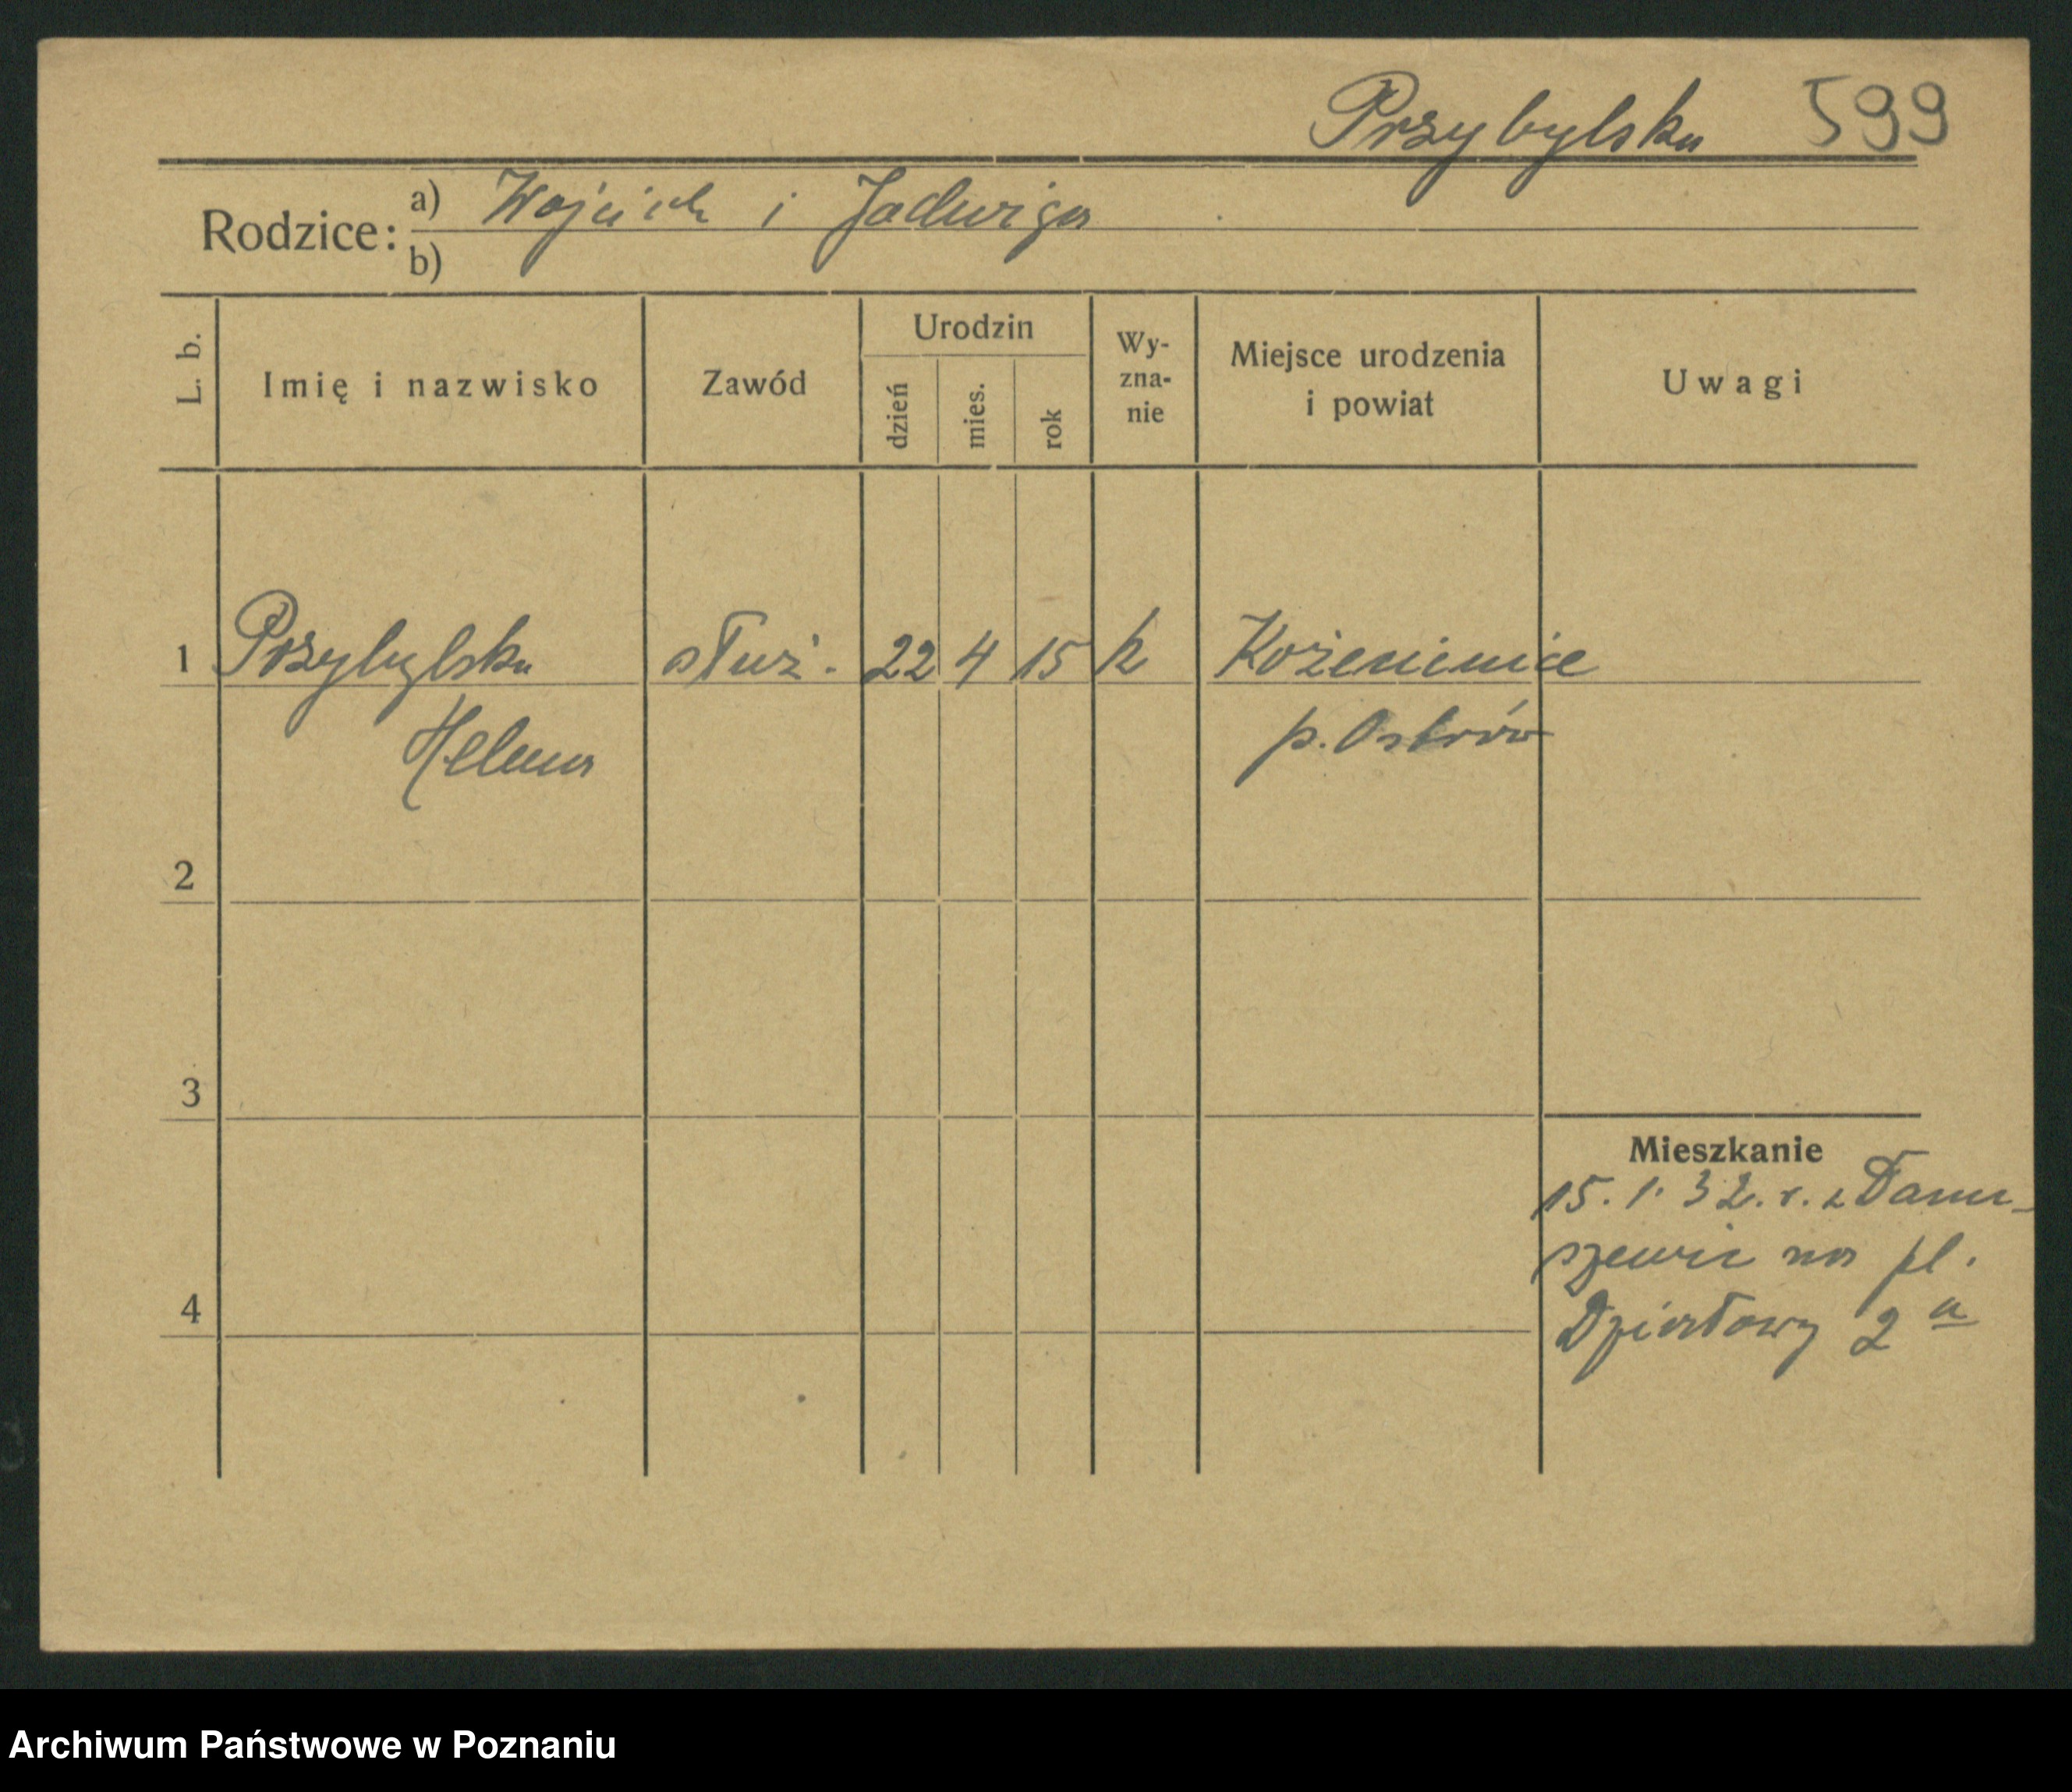 Przybylska 599
Rodzice: a) Wojciech i Jadwiga
b)
L. b.
Imię i nazwisko
Zawód
Urodzin
dzień
mies.
rok
Wy-
zna-
nie
Miejsce urodzenia
i powiat
Uwagi
1 Przybylska służ. 22 4 15 k
Helena p. Ostrów
2
3
Mieszkanie
15. 1. 32. r. z
na pl.
4
Działowy 2 a
Archiwum Państwowe w Poznaniu